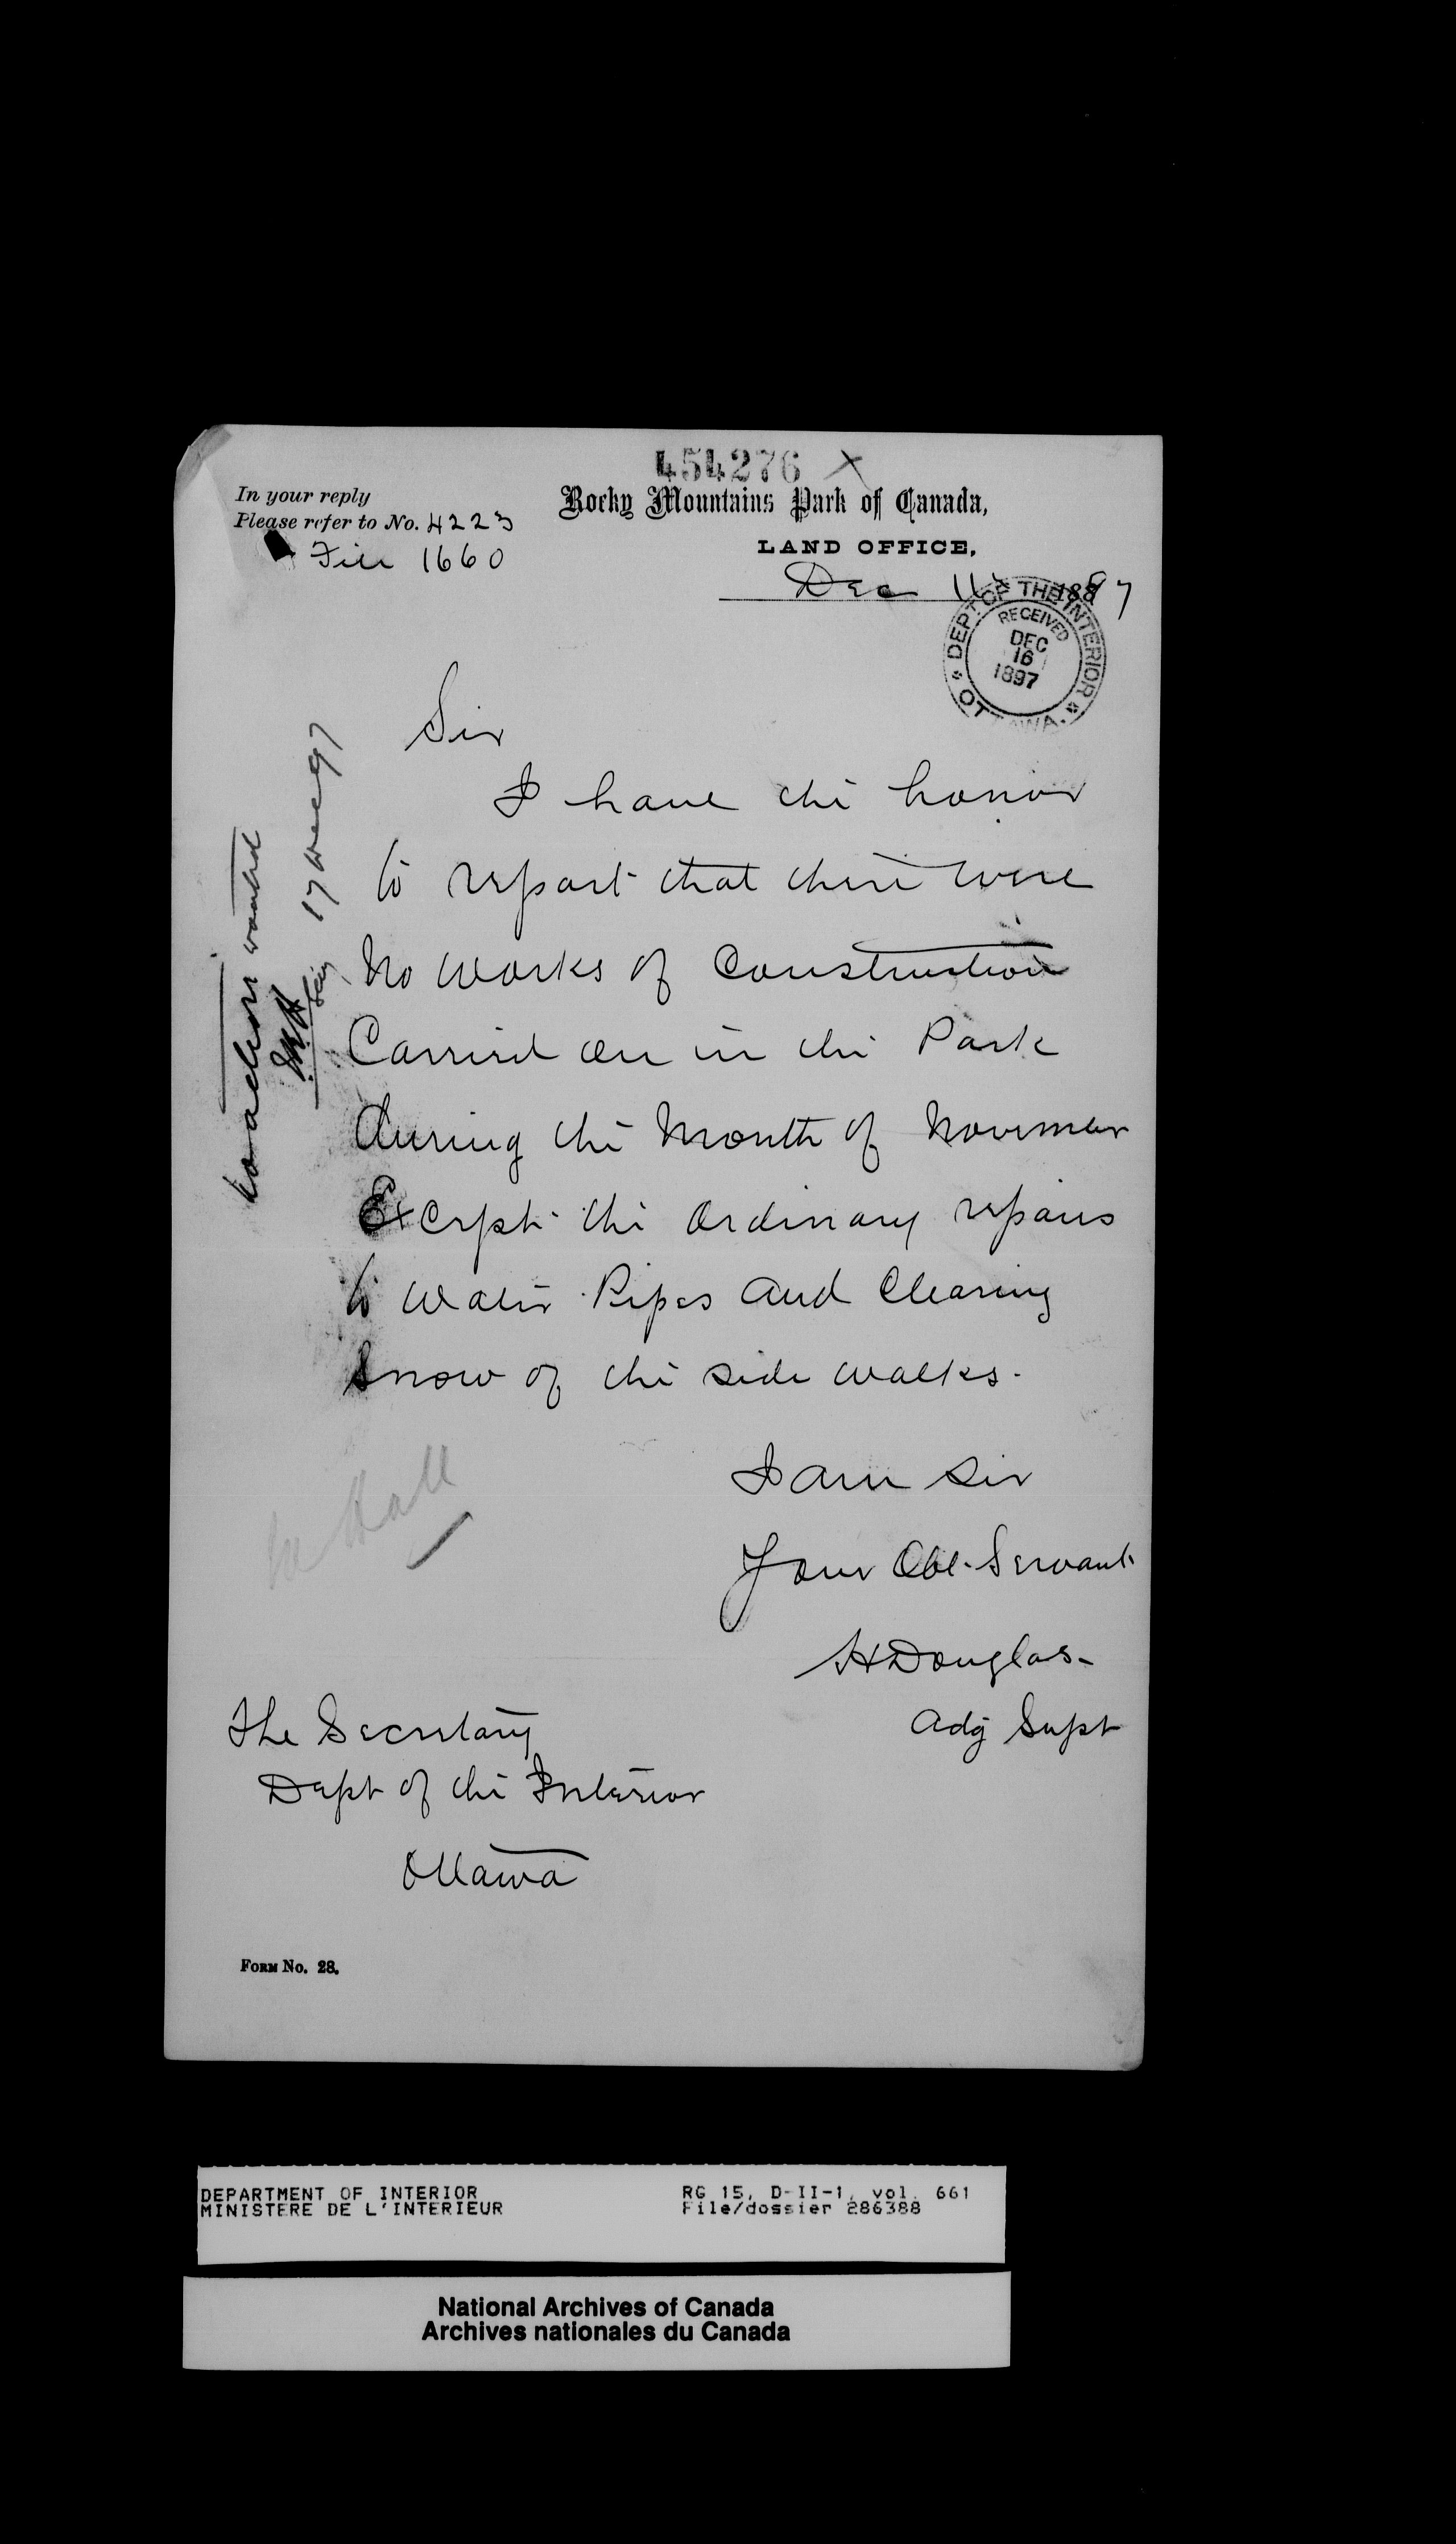 454276 X
In your reply
Please refer to No. 4223
File 1660
Rocky Mountains Park of Canada,
LAND OFFICE,
Dec 11 1897
DEPT. OF THE INTERIOR
RECEIVED
DEC
16
1897
OTTAWA.
Sir
I have the honor
to report that there were
no works of Construction
Carried on in the Park
during the Month of November
Except the ordinary repairs
to Water Pipes and Clearing
Snow of the side walks.
I am Sir
Your Obt. Servant
H Douglas
Adg Supt
The Secretary
Dept of the Interior
Ottawa
no action wanted
17 Dec 97
Mr Hall
FORM No. 28.
DEPARTMENT OF INTERIOR
MINISTERE DE L'INTERIEUR
RG 15, D-II-1, vol. 661
File/dossier 286388
National Archives of Canada
Archives nationales du Canada